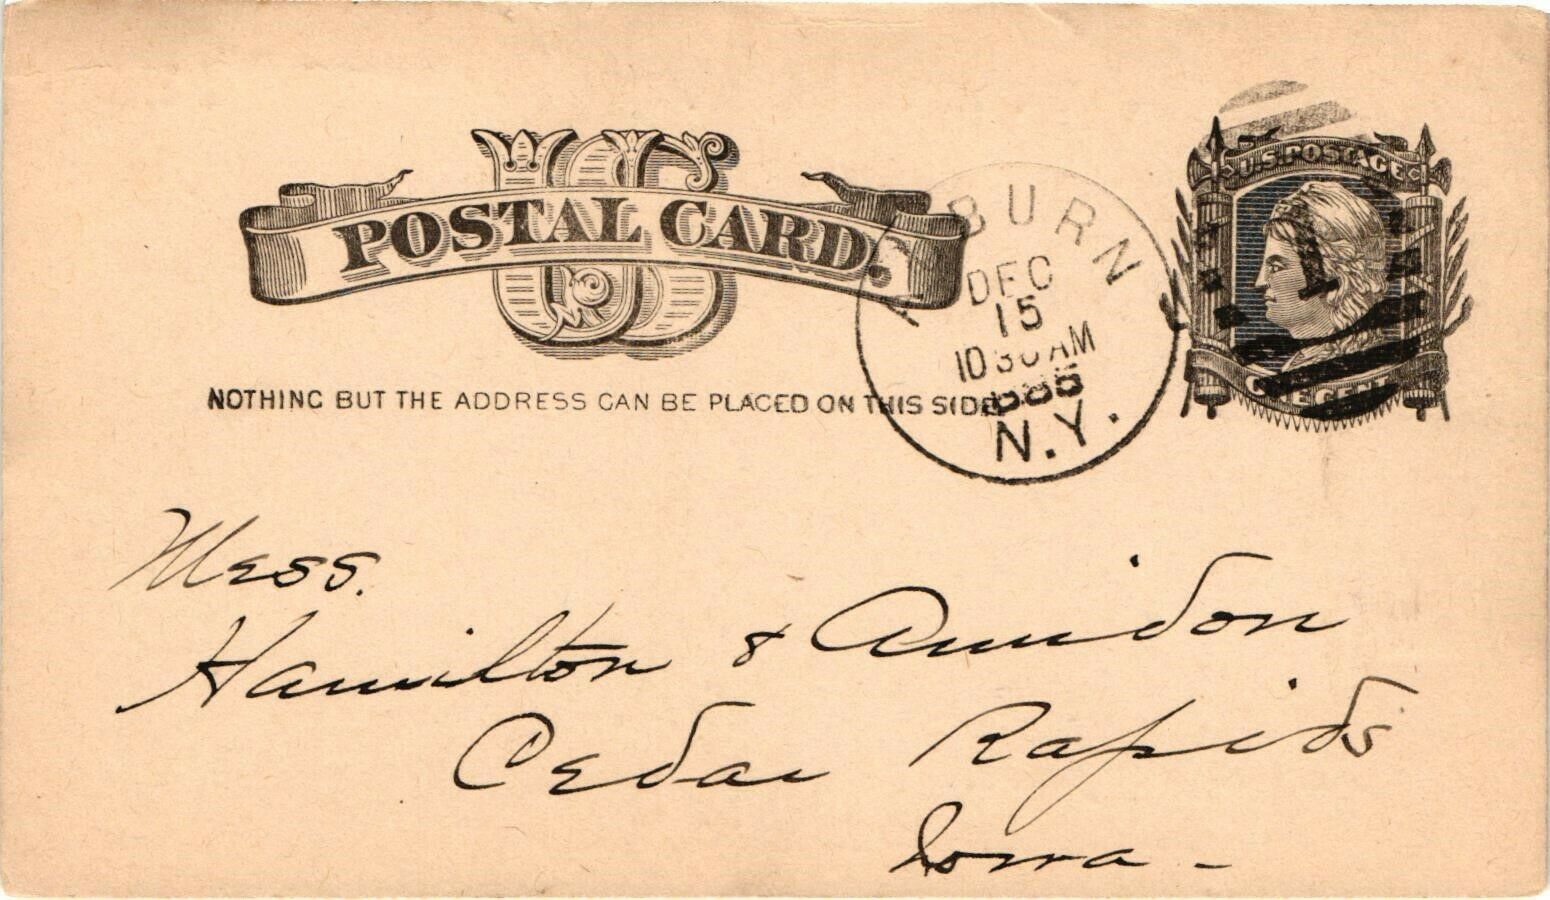 US
POSTAL CARD.
NOTHING BUT THE ADDRESS CAN BE PLACED ON THIS SIDE
AUBURN
DEC
15
10 30 AM
1885
N.Y.
U.S. POSTAGE
1
ONE CENT
Mess.
Hamilton & Amidon
Cedar Rapids
Iowa -